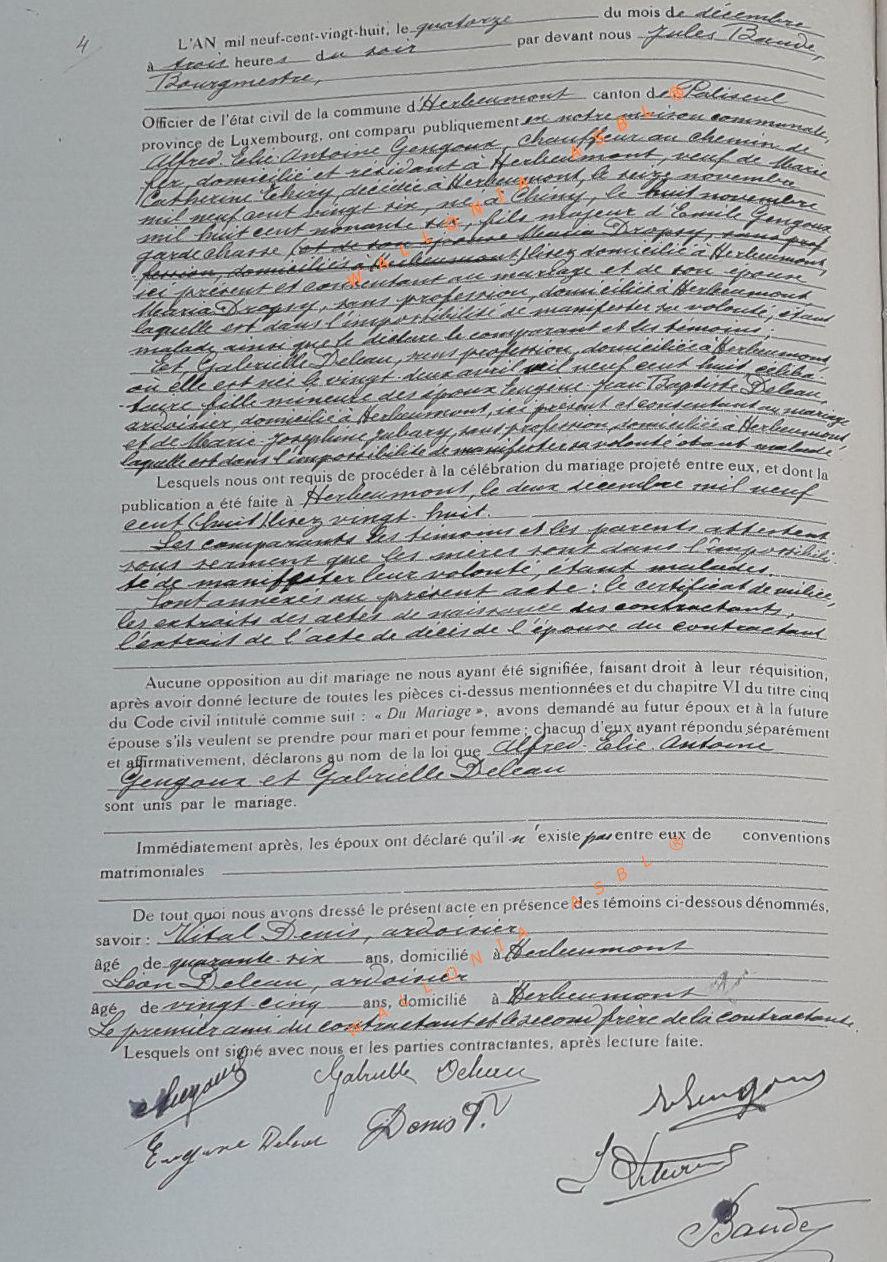 4
L'AN mil neuf-cent-vingt-huit, le quatorze du mois de décembre
à trois heures du soir par devant nous Jules Baude,
Bourgmestre,
Officier de l'état civil de la commune d'Herbeumont canton de Paliseul
province de Luxembourg, ont comparu publiquement en notre maison communale,
Alfred-Elie-Antoine Gengoux, chauffeur au chemin de
fer, domicilié et résidant à Herbeumont, veuf de Marie
Catherine Thiry décédée à Herbeumont, le seize novembre
mil neuf cent vingt six, né à Chiny, le huit novembre
mil huit cent nonante six, fils majeur d'Emile Gengoux
garde chasse (et de son épouse Maria Dropsy, sans prof
fession, domiciliés à Herbeumont) lisez domicilié à Herbeumont,
ici présent et consentant au mariage et de son épouse
Maria Dropsy, sans profession, domiciliée à Herbeumont
laquelle est dans l'impossibilité de manifester sa volonté, étant
malade, ainsi que le déclare le comparant et les témoins;
Et, Gabrielle Deleau, sans profession, domiciliée à Herbeumont,
où elle est née le vingt deux avril mil neuf cent huit céliba-
taire, fille mineure des époux Eugène Jean Baptiste Deleau,
ardoisier, domicilié à Herbeumont, ici présent et consentant au mariage
et de Marie-Joséphine Jubary, sans profession, domiciliée à Herbeumont,
laquelle est dans l'impossibilité de manifester sa volonté étant malade.
Lesquels nous ont requis de procéder à la célébration du mariage projeté entre eux, et dont la
publication a été faite à Herbeumont, le deux décembre mil neuf
cent (huit) lisez vingt-huit.
Les comparants les témoins et les parents attestent
sous serment que les mères sont dans l'impossibili-
té de manifester leur volonté, étant malades.
Sont annexés au présent acte: le certificat de milice,
les extraits des actes de naissance des contractants,
l'extrait de l'acte de décès de l'épouse du contractant
Aucune opposition au dit mariage ne nous ayant été signifiée, faisant droit à leur réquisition,
après avoir donné lecture de toutes les pièces ci-dessus mentionnées et du chapitre VI du titre cinq
du Code civil intitulé comme suit : « Du Mariage », avons demandé au futur époux et à la future
épouse s'ils veulent se prendre pour mari et pour femme ; chacun d'eux ayant répondu séparément
et affirmativement, déclarons au nom de la loi que Alfred-Elie-Antoine
Gengoux et Gabrielle Deleau
sont unis par le mariage.
Immédiatement après, les époux ont déclaré qu'il n'existe pas entre eux de conventions
matrimoniales
De tout quoi nous avons dressé le présent acte en présence des témoins ci-dessous dénommés,
savoir : Vital Denis, ardoisier
âgé de quarante-six ans, domicilié à Herbeumont
Léon Deleau, ardoisier
âgé de vingt-cinq ans, domicilié à Herbeumont
Le premier ami du contractant et le second frère de la contractante.
Lesquels ont signé avec nous et les parties contractantes, après lecture faite.
Gengoux Gabrielle Deleau
Gengoux
Eugène Deleau Denis V.
Baude
WALLONIA ASBL ®
WALLONIA ASBL ®